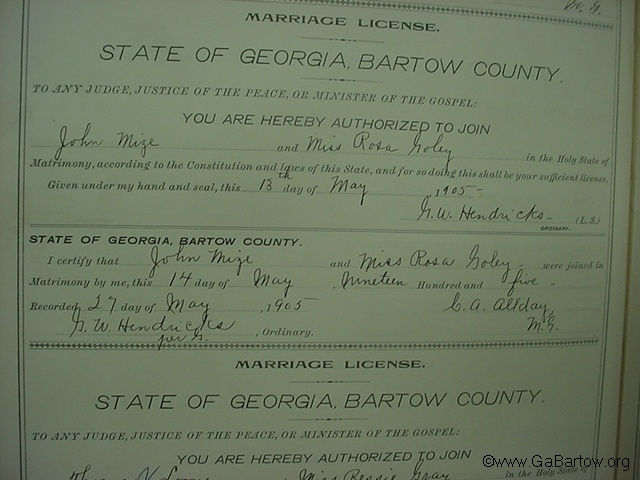 M. G.
MARRIAGE LICENSE.
STATE OF GEORGIA, BARTOW COUNTY.
TO ANY JUDGE, JUSTICE OF THE PEACE, OR MINISTER OF THE GOSPEL:
YOU ARE HEREBY AUTHORIZED TO JOIN
John Mize and Miss Rosa Goley in the Holy State of
Matrimony, according to the Constitution and laws of this State, and for so doing this shall be your sufficient license.
Given under my hand and seal, this 13th day of May, 1905-
G. W. Hendricks- (L. S.)
ORDINARY.
STATE OF GEORGIA, BARTOW COUNTY.
I certify that John Mize and Miss Rosa Goley- were joined in
Matrimony by me, this 14 day of May, Nineteen Hundred and five-
Recorded 27 day of May, 1905 C. A. Allday,
G. W. Hendricks, Ordinary. M. G.
per G.
MARRIAGE LICENSE.
STATE OF GEORGIA, BARTOW COUNTY.
TO ANY JUDGE, JUSTICE OF THE PEACE, OR MINISTER OF THE GOSPEL:
YOU ARE HEREBY AUTHORIZED TO JOIN
Miss Bessie Gray in the Holy State of
©www.GaBartow.org